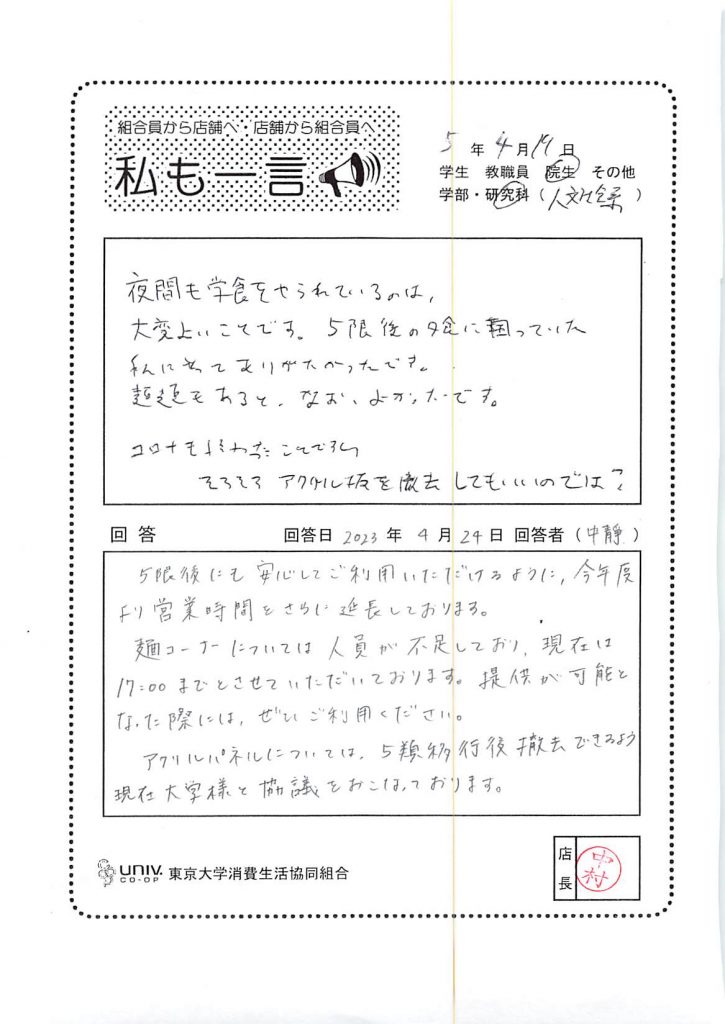 組合員から店舗へ・店舗から組合員へ
私も一言
5 年 4 月 19 日
学生 教職員 院生 その他
学部・研究科（人文社会系）
夜間も学食をやられているのは、
大変よいことです。5限後の夕食に困っていた
私にとってありがたかったです。
麺類もあると、なお、よかったです。
コロナも終わったことですし
そろそろ アクリル板を撤去してもいいのでは?
回答 回答日 2023 年 4 月 24 日 回答者（中静）
5限後にも安心してご利用いただけるように、今年度
より営業時間をさらに延長しております。
麺コーナーについては人員が不足しており、現在は
17:00までとさせていただいております。提供が可能と
なった際には、ぜひご利用ください。
アクリルパネルについては、5類移行後撤去できるよう
現在大学様と協議をおこなっております。
UNIV. CO-OP 東京大学消費生活協同組合
店長 中村